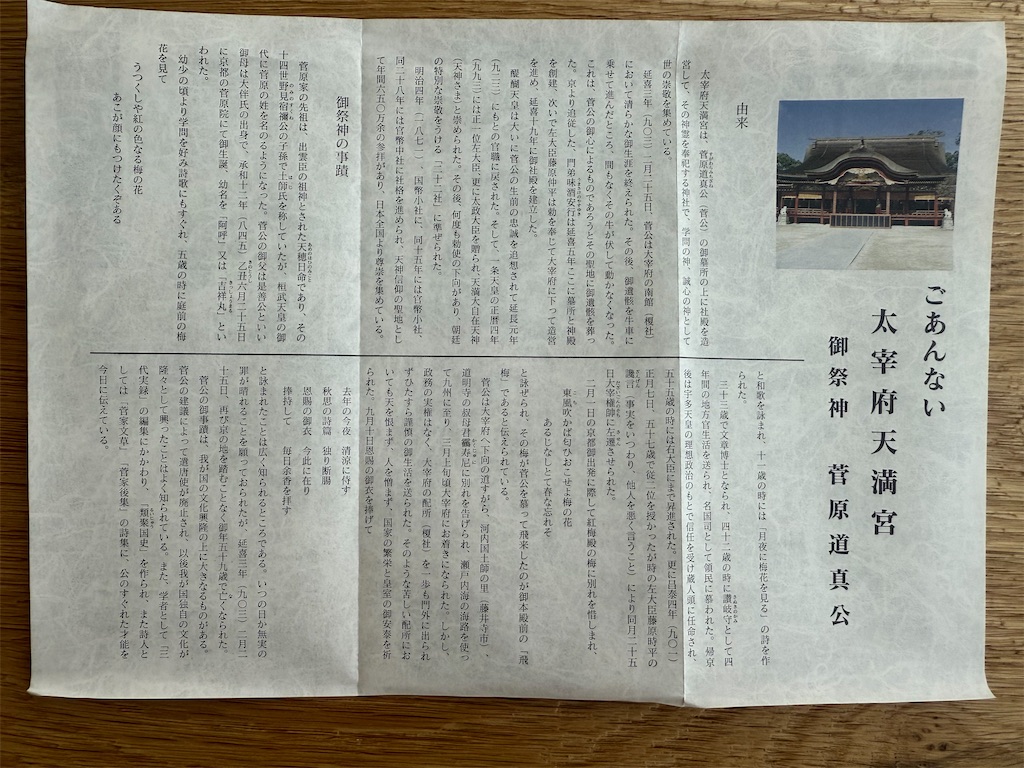 ごあんない
太宰府天満宮
御祭神　菅原道真公
由来
太宰府天満宮は、菅原道真公（菅公）の御墓所の上に社殿を造
営して、その神霊を奉祀する神社で、学問の神、誠心の神として
世の崇敬を集めている。
延喜三年（九〇三）二月二十五日、菅公は大宰府の南館（榎社）
において清らかな御生涯を終えられた。その後、御遺骸を牛車に
乗せて進んだところ、間もなくその牛が伏して動かなくなった。
これは、菅公の御心によるものであろうとその聖地に御遺骸を葬っ
た。京より追従した、門弟味酒安行は延喜五年ここに墓所と神殿
を創建、次いで左大臣藤原仲平は勅を奉じて大宰府に下って造営
を進め、延喜十九年に御社殿を建立した。
醍醐天皇は大いに菅公の生前の忠誠を追想されて延長元年
（九二三）にもとの官職に戻された。そして、一条天皇の正暦四年
（九九三）には正一位左大臣、更に太政大臣を贈られ、天満大自在天神
（天神さま）と崇められた。その後、何度も勅使の下向があり、朝廷
の特別な崇敬をうける「二十二社」に準ぜられた。
明治四年（一八七一）、国幣小社に、同十五年には官幣小社、
同二十八年には官幣中社に社格を進められ、天神信仰の聖地とし
て年間六五〇万余の参拝があり、日本全国より尊崇を集めている。
御祭神の事蹟
菅原家の先祖は、出雲臣の祖神とされた天穂日命であり、その
十四世野見宿禰公の子孫で土師氏を称していたが、桓武天皇の御
代に菅原の姓を名のるようになった。菅公の御父は是善公といい
御母は大伴氏の出身で、承和十二年（八四五）乙丑六月二十五日
に京都の菅原院にて御生誕、幼名を「阿呼」又は「吉祥丸」とい
われた。
幼少の頃より学問を好み詩歌にもすぐれ、五歳の時に庭前の梅
花を見て
うつくしや紅の色なる梅の花
あこが顔にもつけたくぞある
と和歌を詠まれ、十一歳の時には「月夜に梅花を見る」の詩を作
られた。
三十三歳で文章博士となられ、四十二歳の時に讃岐守として四
年間の地方官生活を送られ、名国司として領民に慕われた。帰京
後は宇多天皇の理想政治のもとで信任を受け蔵人頭に任命され、
五十五歳の時には右大臣にまで昇進された。更に昌泰四年（九〇一）
正月七日、五十七歳で従二位を授かったが時の左大臣藤原時平の
讒言（事実をいつわり、他人を悪く言うこと）により同月二十五
日大宰権帥に左遷させられた。
二月一日の京都御出発に際して紅梅殿の梅に別れを惜しまれ、
東風吹かば匂ひおこせよ梅の花
あるじなしとて春な忘れそ
と詠ぜられ、その梅が菅公を慕って飛来したのが御本殿前の「飛
梅」であると伝えられている。
菅公は大宰府へ下向の道すがら、河内国土師の里（藤井寺市）、
道明寺の叔母君覺寿尼に別れを告げられ、瀬戸内海の海路を使っ
て九州に至り、三月上旬頃大宰府にお着きになられた。しかし、
政務の実権はなく、大宰府の配所（榎社）を一歩も門外に出られ
ずひたすら謹慎の御生活を送られた。そのような苦しい配所にお
いても天を恨まず、人を憎まず、国家の繁栄と皇室の御安泰を祈
られた。九月十日恩賜の御衣を捧げて
去年の今夜　清涼に侍す
秋思の詩篇　独り断腸
恩賜の御衣　今此に在り
捧持して　毎日余香を拝す
と詠まれたことは広く知られるところである。いつの日か無実の
罪が晴れることを願っておられたが、延喜三年（九〇三）二月二
十五日、再び京の地を踏むことなく御年五十九歳で亡くなられた。
菅公の御事蹟は、我が国の文化興隆の上に大きなるものがある。
菅公の建議によって遣唐使が廃止され、以後我が国独自の文化が
隆々として興ったことはよく知られている。また、学者として「三
代実録」の編集にかかわり、「類聚国史」を作られ、また詩人と
しては「菅家文草」、「菅家後集」の詩集に、公のすぐれた才能を
今日に伝えている。